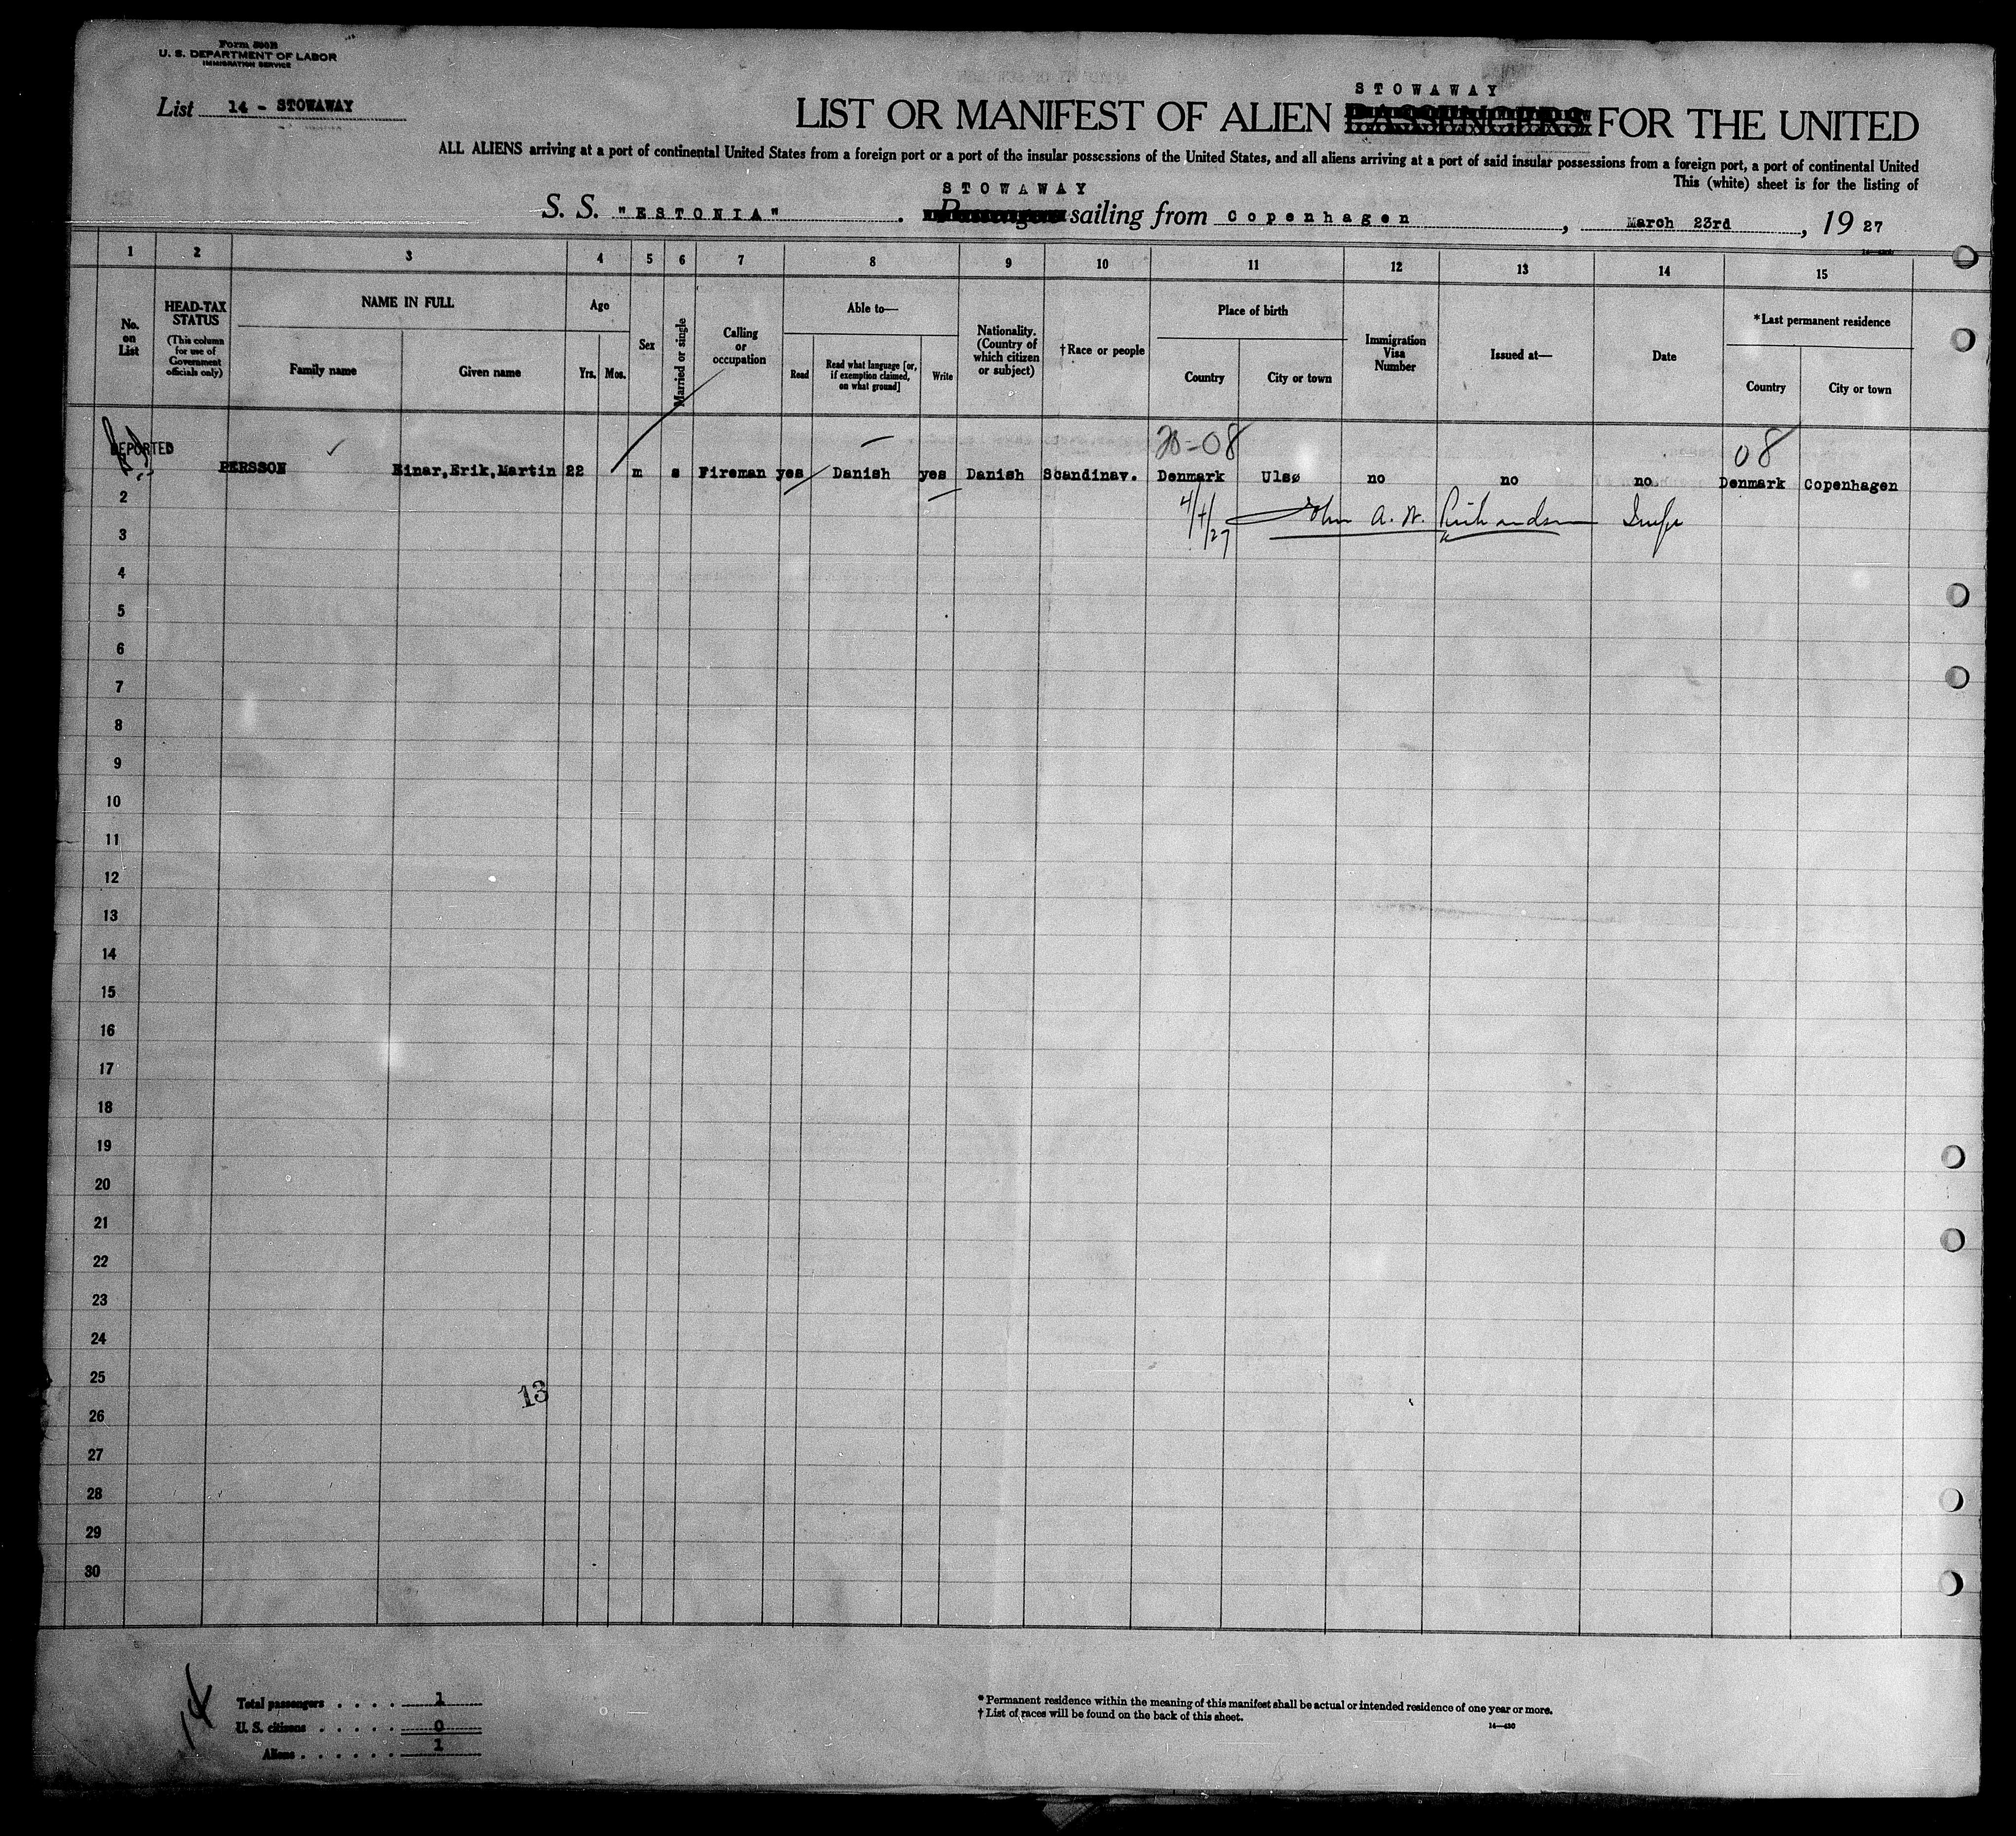 Form 500B
U. S. DEPARTMENT OF LABOR
IMMIGRATION SERVICE
List 14 - STOWAWAY
STOWAWAY
LIST OR MANIFEST OF ALIEN PASSENGERS FOR THE UNITED
ALL ALIENS arriving at a port of continental United States from a foreign port or a port of the insular possessions of the United States, and all aliens arriving at a port of said insular possessions from a foreign port, a port of continental United
This (white) sheet is for the listing of
STOWAWAY
S. S. "ESTONIA" . Passengers sailing from Copenhagen , March 23rd , 19 27
1 2 3 4 5 6 7 8 9 10 11 12 13 14 15
No. on List
HEAD-TAX STATUS
(This column for use of Government officials only)
NAME IN FULL
Family name Given name
Age
Yrs. Mos.
Sex
Married or single
Calling or occupation
Able to—
Read Read what language [or, if exemption claimed, on what ground] Write
Nationality. (Country of which citizen or subject)
†Race or people
Place of birth
Country City or town
Immigration Visa Number
Issued at—
Date
*Last permanent residence
Country City or town
DEPORTED 20-08 08
PERSSON Einar,Erik,Martin 22 m s Fireman yes Danish yes Danish Scandinav. Denmark Ulsø no no no Denmark Copenhagen
2 4/4/27 John A. W. Richardson Insp
3
4
5
6
7
8
9
10
11
12
13
14
15
16
17
18
19
20
21
22
23
24
25
13
26
27
28
29
30
14
Total passengers . . . . 1
U. S. citizens . . . . . 0
Aliens . . . . . . 1
* Permanent residence within the meaning of this manifest shall be actual or intended residence of one year or more.
† List of races will be found on the back of this sheet.
14—430